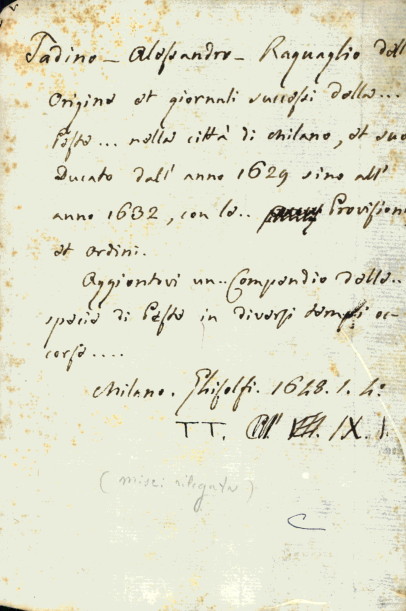 Tadino - Alessandro - Raguaglio dell'
Origine et giornali successi della...
Peste... nella città di Milano, et suo
Ducato dall' anno 1629 sino all'
anno 1632, con le.. Provisioni
et ordini.
Aggiontovi un.. Compendio delle..
specie di Peste in diversi tempi oc-
corse....
Milano. Ghisolfi. 1648. 1. 4º
TT. IX. 1.
(misci rilegata)
C